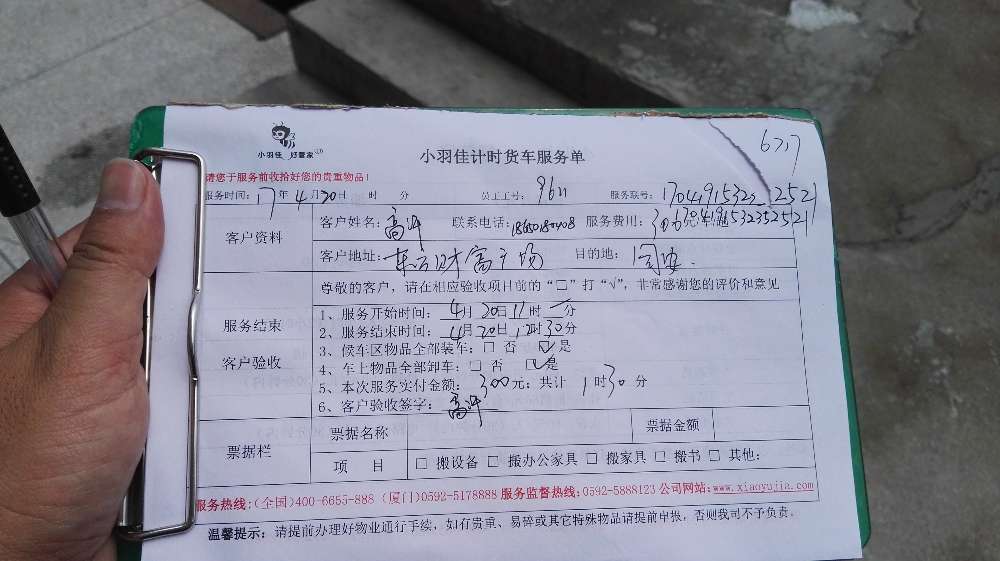 小羽佳 好管家
小羽佳计时货车服务单
请您于服务前收拾好您的贵重物品!
服务时间: 17年4月20日 时 分 员工工号: 9611 服务联号:
客户资料
客户姓名: 联系电话: 服务费用:
客户地址: 财富广场 目的地: 同安
尊敬的客户，请在相应验收项目前的“□”打“√”，非常感谢您的评价和意见
服务结束
客户验收
1、服务开始时间: 4月20日11时 分
2、服务结束时间: 4月20日12时30分
3、候车区物品全部装车: □ 否 ☑是
4、车上物品全部卸车: □ 否 ☑是
5、本次服务实付金额: 300元; 共计 1时30分
6、客户验收签字:
票据栏
票据名称 票据金额
项 目 □ 搬设备 □ 搬办公家具 □ 搬家具 □ 搬书 □ 其他:
服务热线:(全国)400-6655-888 (厦门)0592-5178888 服务监督热线:0592-5888123 公司网站:www.xiaoyujia.com
温馨提示: 请提前办理好物业通行手续, 如有贵重、易碎或其它特殊物品请提前申报, 否则我司不予负责.